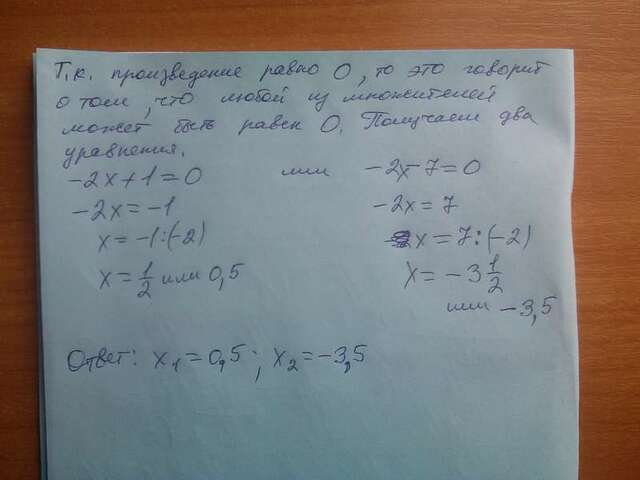 Т.к. произведение равно 0, то это говорит
о том, что любой из множителей
может быть равен 0. Получаем два
уравнения.
-2x+1=0 или -2x-7=0
-2x=-1 -2x=7
x=-1:(-2) x=7:(-2)
x=1/2 или 0,5 x=-3 1/2
или -3,5
Ответ: x₁=0,5; x₂=-3,5